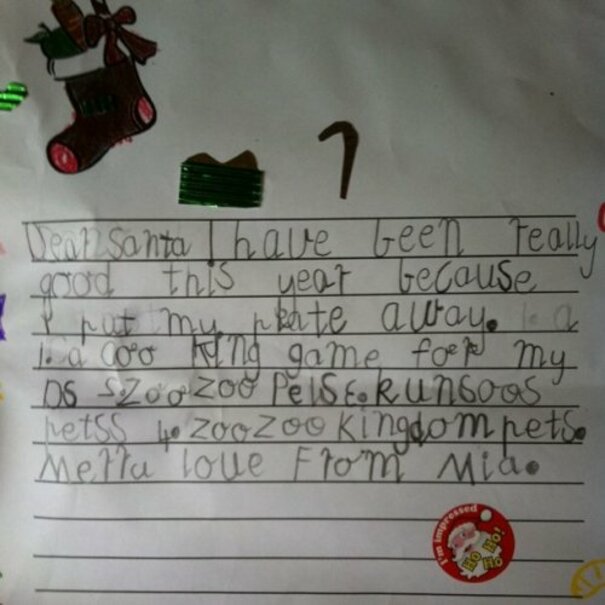 Dear Santa I have been really
good this year because
I put my plate away.
1. a Coo king game for my
DS 2. Zoo Zoo Pets
petss 4. zoozoo kingdom pets.
Merra love From Mia.
I'm impressed
Ho Ho!
Ho